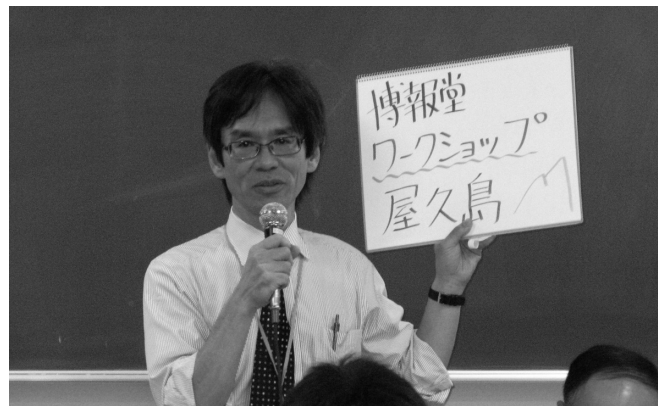 博報堂
ワークショップ
屋久島